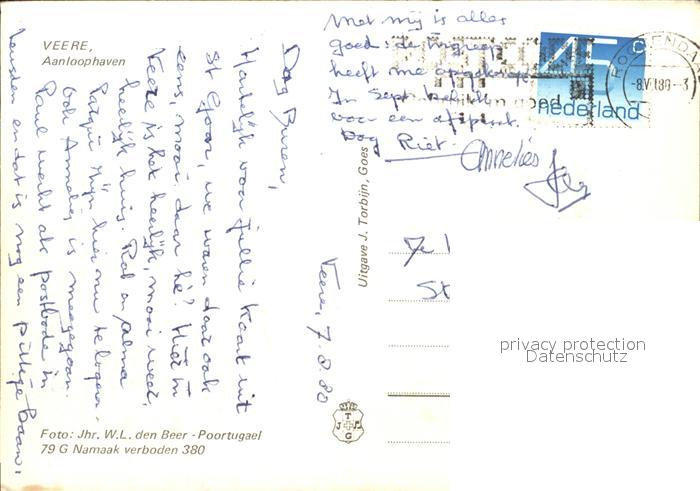 VEERE,
Aanloophaven
Dag Buren,
Hartelijk voor jullie kaart uit
St Goar, we waren daar ook
eens, mooi daar hè? Hier in
Veere is het heerlijk, mooi weer,
heerlijk huis. Rob en Alma
Patijn zijn hier nu te logeren.
Ook Annelies is meegegaan.
Paul werkt als postbode in
Leusden en dat is nog een pittige baan,
Met mij is alles
goed: de ingreep
heeft me opgeknapt
In Sept. heb ik
voor een afspraak.
Dag Riet
Annelies
Veere, 7.8.80
Uitgave J. Torbijn, Goes
45 c
nederland
-8.VIII.80-3
St
T
J G
G
Foto: Jhr. W.L. den Beer - Poortugael
79 G Namaak verboden 380
privacy protection
Datenschutz